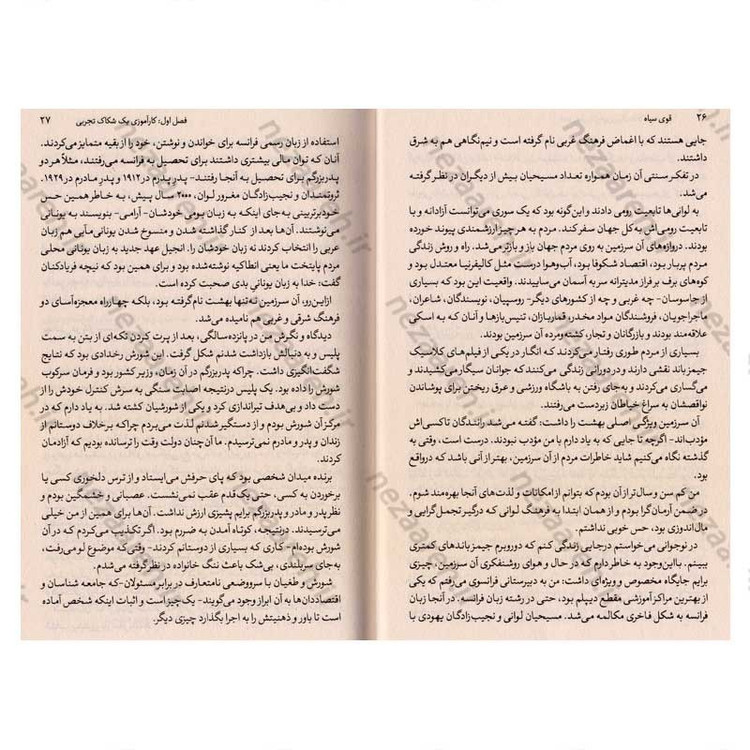 ۲۶ قوی سیاه
جایی هستند که با اغماض فرهنگ غربی نام گرفته است و نیم‌نگاهی هم به شرق
داشتند.
در تفکر سنتی آن زمان همواره تعداد مسیحیان بیش از دیگران در نظر گرفته
می‌شد.
به لوانی‌ها تابعیت رومی دادند و این‌گونه بود که یک سوری می‌توانست آزادانه و با
تابعیت رومی‌اش به کل جهان سفر کند. مردم به هر چیز ارزشمندی پیوند خورده
بودند. دروازه‌های آن سرزمین به روی مردم جهان باز و بازتر می‌شد. راه و روش زندگی
مردم پربار بود، اقتصاد شکوفا بود، آب‌وهوا درست مثل کالیفرنیا معتدل بود و
کوه‌های برف بر فراز مدیترانه سر به آسمان می‌ساییدند. واقعیت این بود که بسیاری
از جاسوسان- چه غربی و چه از کشورهای دیگر- روسپیان، نویسندگان، شاعران،
ماجراجویان، فروشندگان مواد مخدر، قماربازان، تنیس‌بازها و آنان که به اسکی
علاقه‌مند بودند و بازرگانان و تجار، کشته‌ومرده آن سرزمین بودند.
بسیاری از مردم طوری رفتار می‌کردند که انگار در یکی از فیلم‌های کلاسیک
جیمزباند نقشی دارند و در دورانی زندگی می‌کنند که جوانان سیگار می‌کشیدند و
می‌گساری می‌کردند و به‌جای رفتن به باشگاه ورزشی و عرق ریختن برای پوشاندن
نواقصشان به سراغ خیاطان زبردست می‌رفتند.
آن سرزمین ویژگی اصلی بهشت را داشت: گفته می‌شد رانندگان تاکسی‌اش
مؤدب‌اند- اگرچه تا جایی که به یاد دارم با من مؤدب نبودند. درست است، وقتی به
گذشته نگاه می‌کنیم شاید خاطرات مردم از آن سرزمین، بهتر از آنی باشد که درواقع
بود.
من کم سن و سال‌تر از آن بودم که بتوانم از امکانات و لذت‌های آنجا بهره‌مند شوم.
در ضمن آرمان‌گرا بودم و از همان ابتدا به فرهنگ لوانی که درگیر تجمل‌گرایی و
مال‌اندوزی بود، حس خوبی نداشتم.
در نوجوانی می‌خواستم درجایی زندگی کنم که دوروبرم جیمزباندهای کمتری
ببینم. بااین‌وجود به خاطر دارم که در حال و هوای روشنفکری آن سرزمین، چیزی
برایم جایگاه مخصوص و ویژه‌ای داشت: من به دبیرستانی فرانسوی می‌رفتم که یکی
از بهترین مراکز آموزشی مقطع دیپلم بود، حتی در رشته زبان فرانسه. در آنجا زبان
فرانسه به شکل فاخری مکالمه می‌شد. مسیحیان لوانی و نجیب‌زادگان یهودی با
فصل اول: کارآموزی یک شکاک تجربی ۲۷
استفاده از زبان رسمی فرانسه برای خواندن و نوشتن، خود را از بقیه متمایز می‌کردند.
آنان که توان مالی بیشتری داشتند برای تحصیل به فرانسه می‌رفتند، مثلاً هر دو
پدربزرگم برای تحصیل به آنجا رفتند- پدرِ پدرم در ۱۹۱۲ و پدرِ مادرم در ۱۹۲۹.
ثروتمندان و نجیب‌زادگان مغرور لوان، ۲۰۰۰ سال پیش، به خاطر همین حس
خودبرتربینی به جای اینکه به زبان بومی خودشان- آرامی- بنویسند به یونانی
می‌نوشتند. آن‌ها بعد از کنار گذاشته شدن و منسوخ شدن یونانی مآبی هم زبان
عربی را انتخاب کردند نه زبان خودشان را. انجیل عهد جدید به زبان یونانی محلی
مردم پایتخت ما یعنی انطاکیه نوشته‌شده بود و برای همین بود که نیچه فریادکنان
گفت: خدا به زبان یونانی بدی صحبت کرده است.
ازاین‌رو، آن سرزمین نه‌تنها بهشت نام‌گرفته بود، بلکه چهارراه معجزه‌آسای دو
فرهنگ شرقی و غربی هم نامیده می‌شد.
دیدگاه و نگرش من در پانزده‌سالگی، بعد از پرت کردن تکه‌ای از بتن به سمت
پلیس و به دنبالش بازداشت شدنم شکل گرفت. این شورش رخدادی بود که نتایج
شگفت‌انگیزی داشت. چراکه پدربزرگم در آن زمان، وزیر کشور بود و فرمان سرکوب
شورش را داده بود. یک پلیس درنتیجه اصابت سنگی به سرش کنترل خودش را از
دست داد و بی‌هدف تیراندازی کرد و یکی از شورشیان کشته شد. به یاد دارم که در
مرکز آن شورش بودم و از دستگیر شدنم لذت می‌بردم چراکه برخلاف دوستانم از
زندان و پدر و مادرم نمی‌ترسیدم. ما آن‌چنان دولت وقت را ترسانده بودیم که آزادمان
کردند.
برنده میدان شخصی بود که پای حرفش می‌ایستاد و از ترس دلخوری کسی یا
برخوردن به کسی، حتی یک‌قدم عقب نمی‌نشست. عصبانی و خشمگین بودم و
نظر پدر و مادر و پدربزرگم برایم پشیزی ارزش نداشت. همین آن‌ها را از من خیلی
می‌ترسیدند. درنتیجه، کوتاه آمدن به ضررم بود. اگر تکذیب می‌کردم که در آن
شورش بوده‌ام- کاری که بسیاری از دوستانم کردند- وقتی که موضوع لو می‌رفت،
به‌جای سربلندی، بی‌شک باعث ننگ خانواده در نظر گرفته می‌شدم.
شورش و طغیان با سرووضعی نامتعارف در برابر مسئولان-که جامعه شناسان و
اقتصاددان‌ها به آن ابراز وجود می‌گویند- یک‌چیز است و اثبات اینکه شخص آماده
است تا باور و ذهنیتش را به اجرا بگذارد چیزی دیگر.
nezaareh.ir